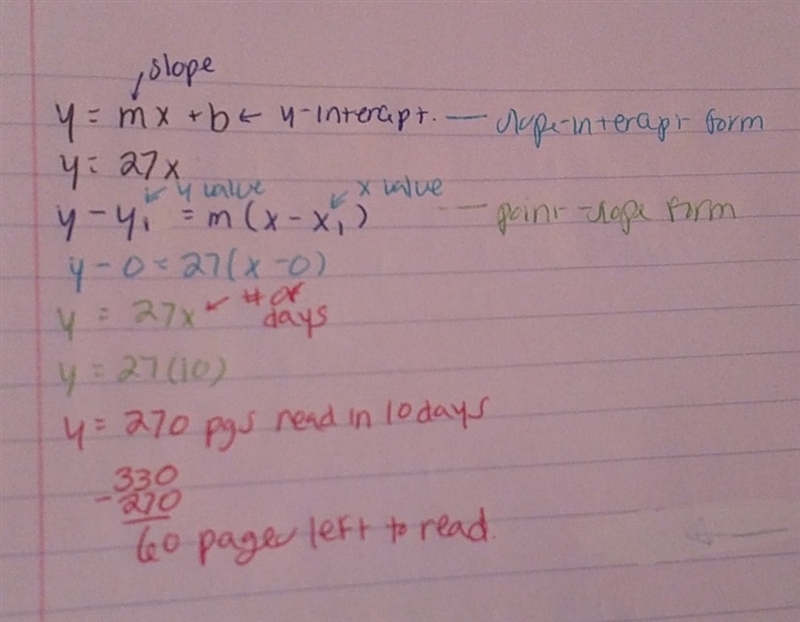 slope
y = mx + b ← y-intercept. — slope-intercept form
y = 27x
y value x value
y - y₁ = m(x - x₁) — point-slope form
y - 0 = 27(x - 0)
y = 27x ← # of days
y = 27(10)
y = 270 pgs read in 10 days
330
- 270
60 pages left to read.